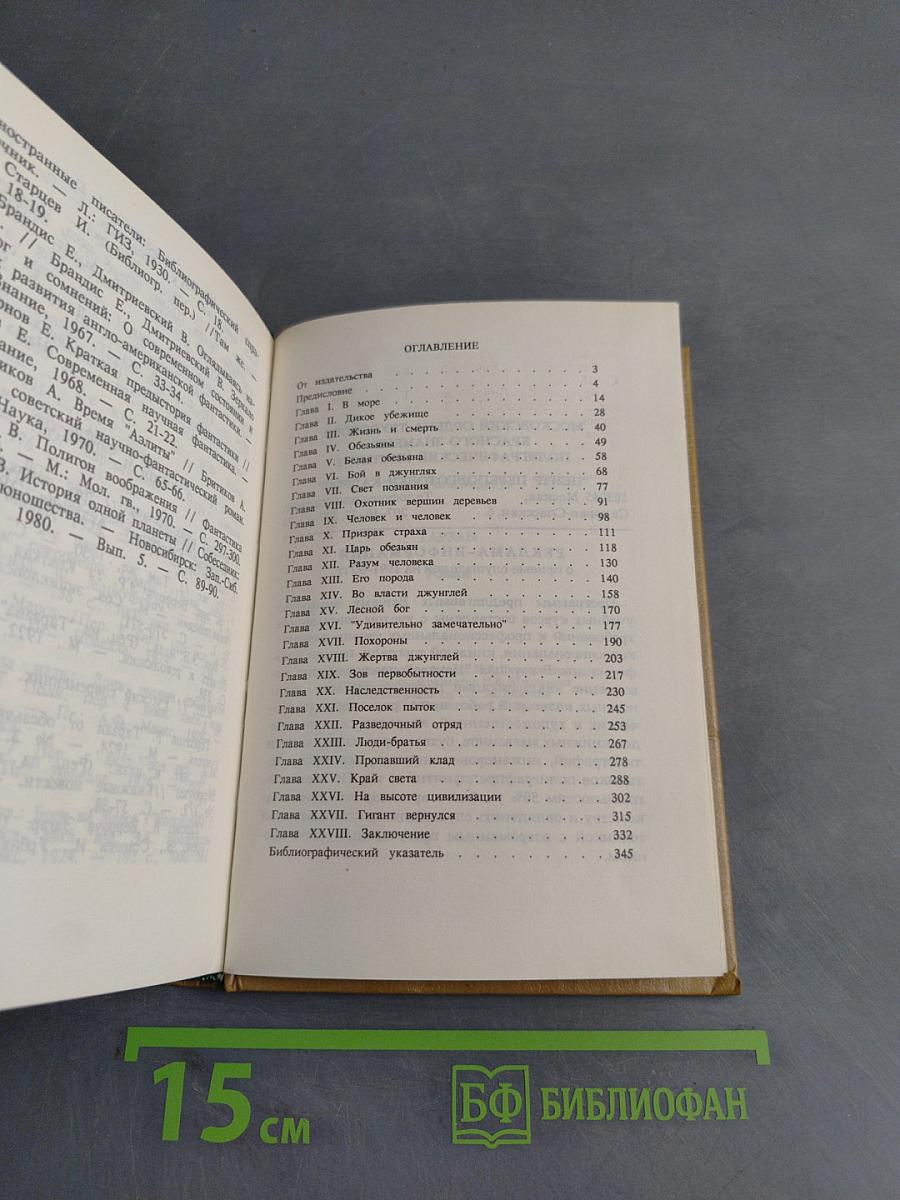 ностранные писатели: Библиографический спра-
чник. — Л.: ГИЗ, 1930. — С. 18.
Старцев И. (Библиогр. пер.) //Там же. —
18-19.
Брандис Е., Дмитриевский В. Оглядываясь на-
// Брандис Е., Дмитриевский В. Зеркало
ог и сомнений: О современном состоянии и
развития англо-американской фантастики. —
нание, 1967. — С. 33-34.
рнов Е. Краткая предыстория фантастики //
Е. Современная научная фантастика. —
ание, 1968. — С. 21-22.
иков А. Время "Аэлиты" // Бритиков А.
советский научно-фантастический роман.
Наука, 1970. — С. 65-66.
В. Полигон воображения // Фантастика
— М.: Мол. гв., 1970. — С. 297-300.
В. История одной планеты // Собеседник:
юношества. — Новосибирск: Зап.-Сиб.
1980. — Вып. 5. — С. 89-90.
ОГЛАВЛЕНИЕ
От издательства . . . . . . . . . . . 3
Предисловие . . . . . . . . . . . 4
Глава I. В море . . . . . . . . . . . 14
Глава II. Дикое убежище . . . . . . . . 28
Глава III. Жизнь и смерть . . . . . . . . 40
Глава IV. Обезьяны . . . . . . . . . 49
Глава V. Белая обезьяна . . . . . . . . 58
Глава VI. Бой в джунглях . . . . . . . . 68
Глава VII. Свет познания . . . . . . . . 77
Глава VIII. Охотник вершин деревьев . . . . . 91
Глава IX. Человек и человек . . . . . . . 98
Глава X. Призрак страха . . . . . . . . 111
Глава XI. Царь обезьян . . . . . . . . 118
Глава XII. Разум человека . . . . . . . . 130
Глава XIII. Его порода . . . . . . . . . 140
Глава XIV. Во власти джунглей . . . . . . 158
Глава XV. Лесной бог . . . . . . . . . 170
Глава XVI. "Удивительно замечательно" . . . . . 177
Глава XVII. Похороны . . . . . . . . . 190
Глава XVIII. Жертва джунглей . . . . . . . 203
Глава XIX. Зов первобытности . . . . . . . 217
Глава XX. Наследственность . . . . . . . 230
Глава XXI. Поселок пыток . . . . . . . . 245
Глава XXII. Разведочный отряд . . . . . . . 253
Глава XXIII. Люди-братья . . . . . . . . 267
Глава XXIV. Пропавший клад . . . . . . . 278
Глава XXV. Край света . . . . . . . . 288
Глава XXVI. На высоте цивилизации . . . . . 302
Глава XXVII. Гигант вернулся . . . . . . . 315
Глава XXVIII. Заключение . . . . . . . . 332
Библиографический указатель . . . . . . . . 345
15 см
БФ БИБЛИОФАН